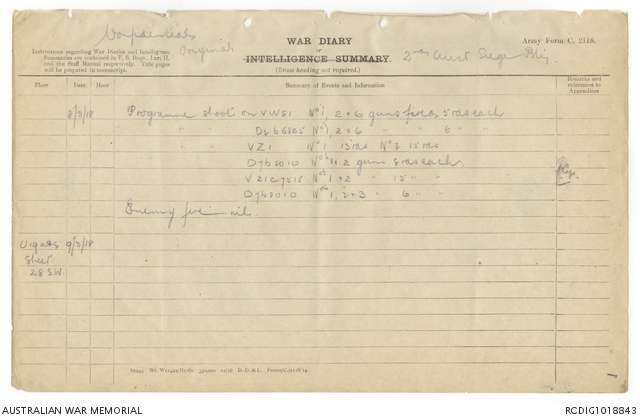 Original
WAR DIARY
or
INTELLIGENCE SUMMARY.
(Erase heading not required.)
Army Form C. 2118.
2nd Aust Siege Bty
Instructions regarding War Diaries and Intelligence
Summaries are contained in F. S. Regs., Part II.
and the Staff Manual respectively. Title pages
will be prepared in manuscript.
Place Date Hour Summary of Events and Information Remarks and references to Appendices
8/3/18 Programme shoot on VW51 No 1, 2 + 6 guns fired 5 rds each
No 1, 2 + 6 " " 6 "
VZ1 No 1 15 rds No 2 15 rds
D7b2010 2 guns 5 rds each
V21c7515 No 1 + 2 " 15 " "
D7b2010 No 1, 2 + 3 " 6 " "
Enemy fire nil.
9/3/18
Sheet
28 SW
AUSTRALIAN WAR MEMORIAL
RCDIG1018843